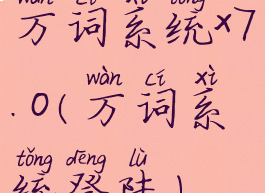 wàn cí xì tǒng
万词系统×7
wàn cí xì
.0(万词系
tǒng dēng lù
统登陆)